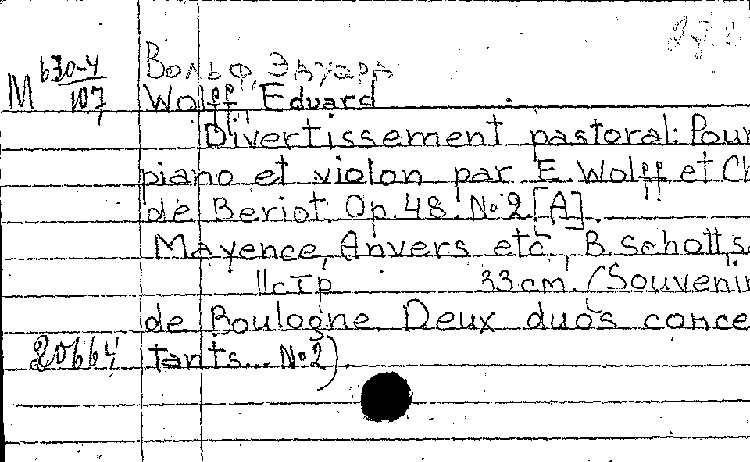 М 630-4/107
Вольф, Эдуард
Wolff, Eduard
Divertissement pastoral: Pour
piano et violon par E. Wolff et Ch
de Beriot. Op. 48. №2. [A].
Mayence, Anvers etc., B. Schott, s
11 стр 33 cm. (Souvenir
de Boulogne. Deux duos conce
20664 tants... №2).